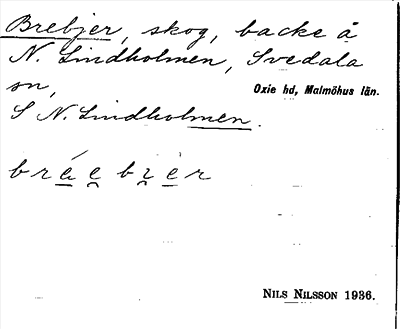 Brebjer, skog, backe å
N. Lindholmen, Svedala
sn,
Oxie hd, Malmöhus län.
S N. Lindholmen.
bré̱e̯ br̯è̱r
NILS NILSSON 1936.